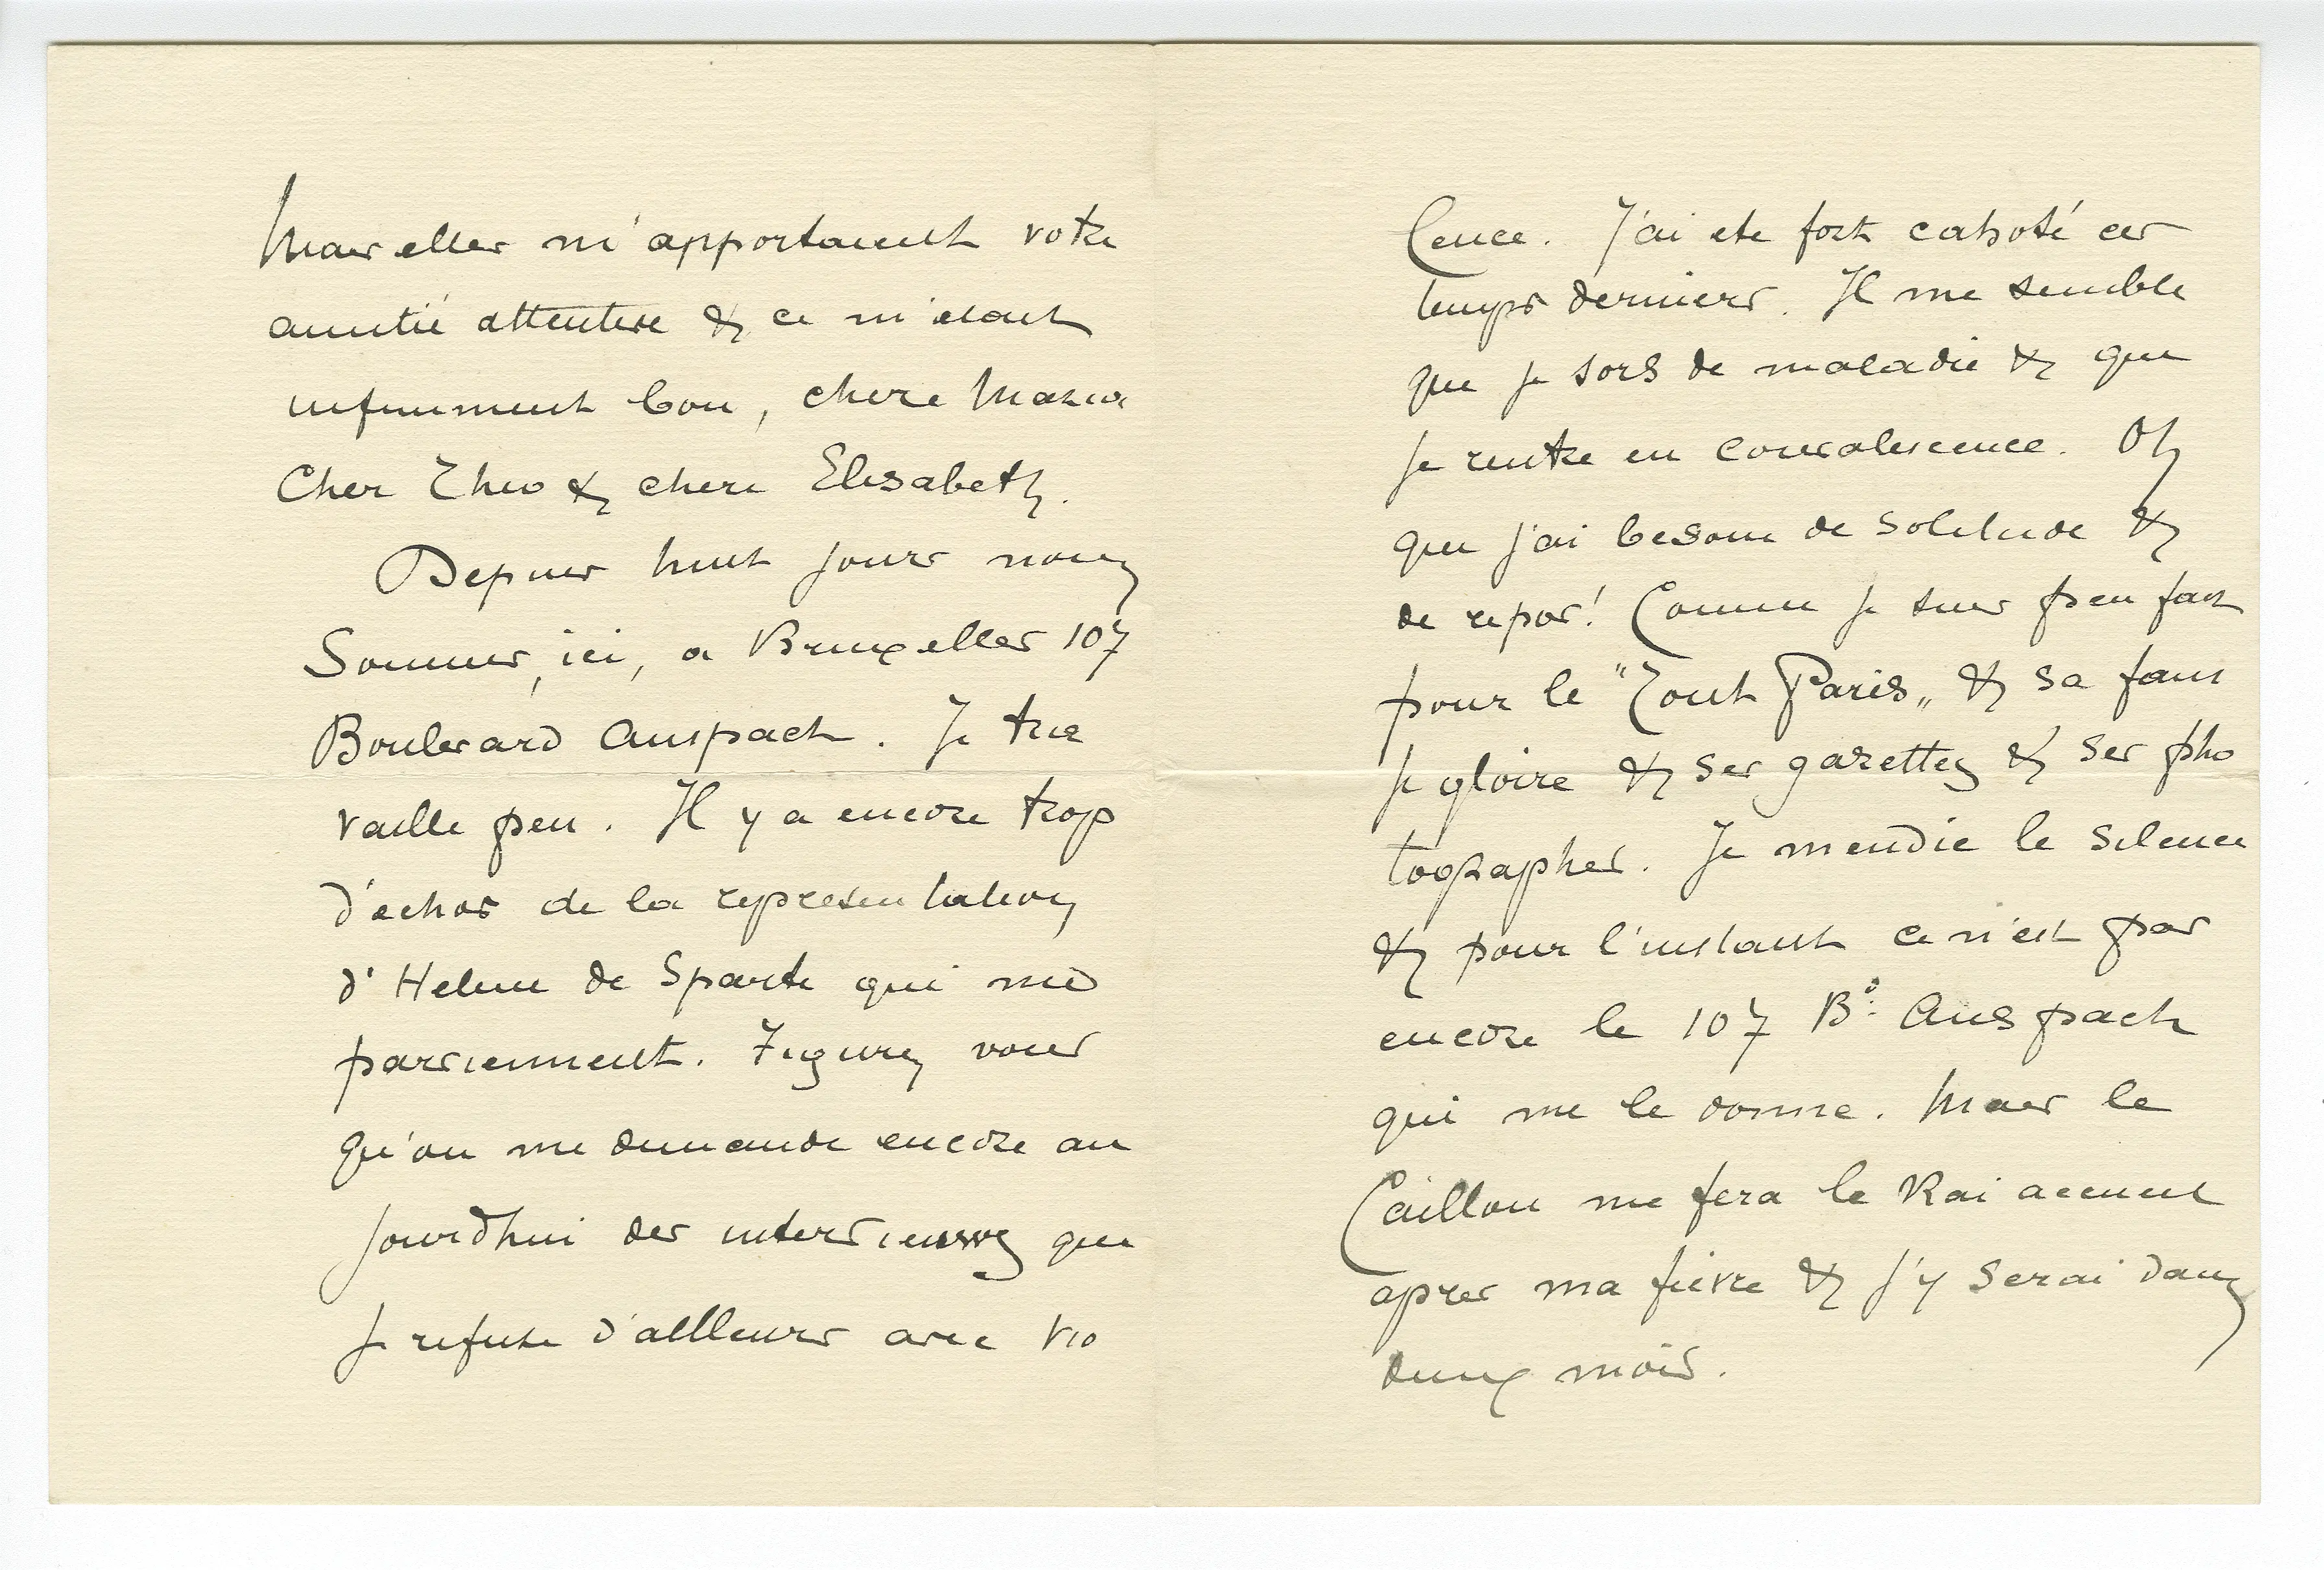 Mais elles m'apportaient votre
amitié attentive & ce m'etait
infiniment bon, chere Maria
Cher Théo & chere Elisabeth.
Depuis huit jours nous
Sommes, ici, a Bruxelles 107
Boulevard Anspach. Je tra
vaille peu. Il y a encore trop
d'echos de la representation
d'Helene de Sparte qui me
parviennent. Figurez vous
qu'on me demande encore au
jourd'hui des interviews que
je refuse d'ailleurs avec vio
lence. J'ai ete fort cahoté ces
temps derniers. Il me semble
que je sors de maladie & que
je rentre en convalescence. Oh
que j'ai besoin de solitude &
de repos! Comme je suis peu fait
pour le "Tout Paris„ & sa faus
se gloire & ses gazettes & ses pho
tographes. Je mendie le silence
& pour l'instant ce n'est pas
encore le 107 Bd: Anspach
qui me le donne. Mais le
Caillou me fera le vrai accueil
apres ma fievre & j'y serai dans
deux mois.